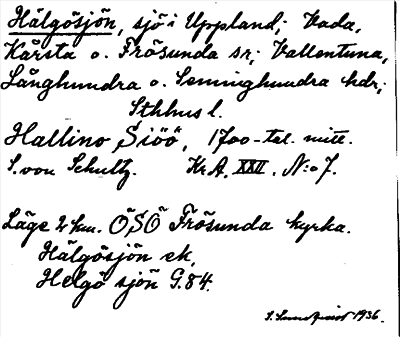 Hälgösjön, sjö i Uppland; Vada,
Kårsta o. Frösunda sr; Vallentuna,
Långhundra o. Seminghundra hdr;
Sthlms l.
Hallino Siöö, 1700-tal. mitt.
S. von Schultz. Kr.A. XXII. N:o 7.
Läge 2 km. ÖSÖ Frösunda kyrka.
Hälgösjön ek,
Helgö sjön G.84.
1936.